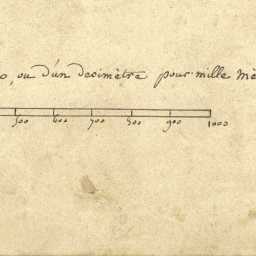 o, ou d'un decimètre pour mille mè
500 600 700 800 900 1000